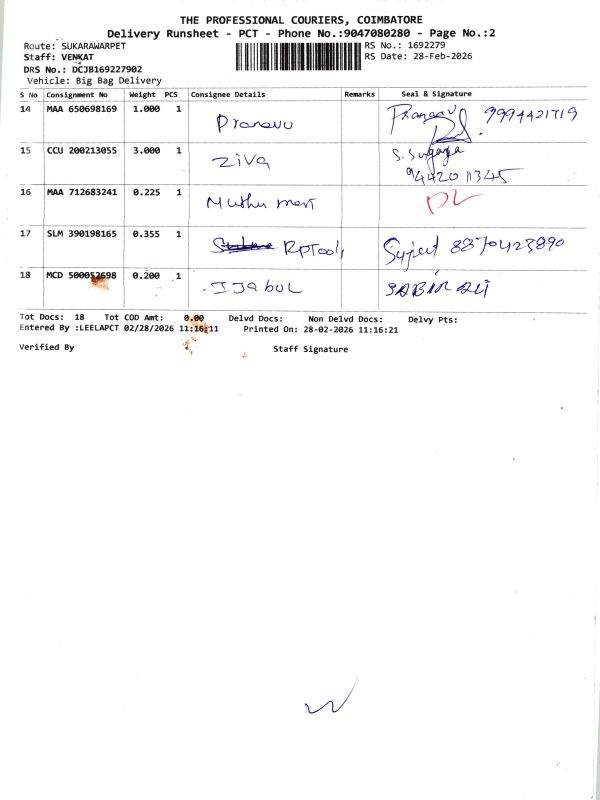 THE PROFESSIONAL COURIERS, COIMBATORE
Delivery Runsheet - PCT - Phone No.:9047080280 - Page No.:2
Route: SUKARAWARPET
RS No.: 1692279
Staff: VENKAT
RS Date: 28-Feb-2026
DRS No.: DCJB169227902
Vehicle: Big Bag Delivery
S No Consignment No Weight PCS Consignee Details Remarks Seal & Signature
14 MAA 650698169 1.000 1 Pranavu Pranavu 9994421719
15 CCU 200213055 3.000 1 Ziva S. Sugaya
9442011345
16 MAA 712683241 0.225 1 Muthu mart
17 SLM 390198165 0.355 1 RpTools Sujeet 8870423890
18 MCD 500052698 0.200 1 IJabul SABIR ALI
Tot Docs: 18 Tot COD Amt: 0.00 Delvd Docs: Non Delvd Docs: Delvy Pts:
Entered By :LEELAPCT 02/28/2026 11:16:11 Printed On: 28-02-2026 11:16:21
Verified By Staff Signature